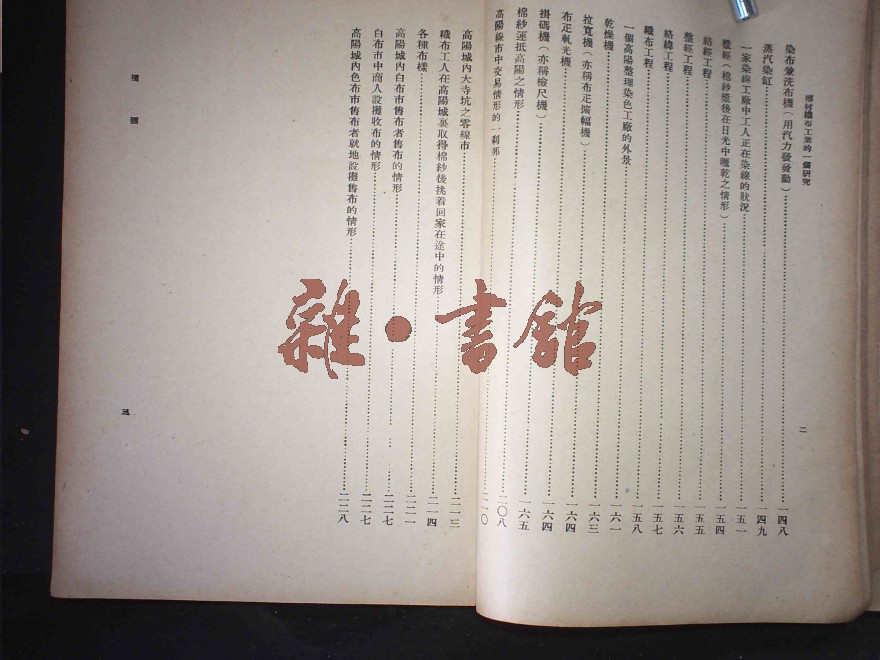 鄉村織布工業的一個研究
二
染布兼洗布機(用汽力發發動)……一四八
蒸汽染缸……一四九
一家染線工廠中工人正在染線的狀況……一五一
漿經(棉紗漿後在日光中曬乾之情形)……一五四
絡經工程……一五五
整經工程……一五六
絡緯工程……一五七
織布工程……一五八
一個高陽整理染色工廠的外景……一六一
乾燥機……一六三
拉寬機(亦稱布疋擴幅機)……一六四
布疋軋光機……一六四
掛碼機(亦稱檢尺機)……一六五
棉紗運抵高陽之情形……二〇八
高陽線市中交易情形的一剎那……二一〇
高陽城內大寺坑之零線市……二一三
織布工人在高陽城裏取得棉紗後挑着回家在途中的情形……二一四
各種布樣……二二一
高陽城內白布市售布者售布的情形……二二七
白布市中商人設攤收布的情形……二二七
高陽城內色布市售布者就地設攤售布的情形……二二八
插圖
三
雜·書館